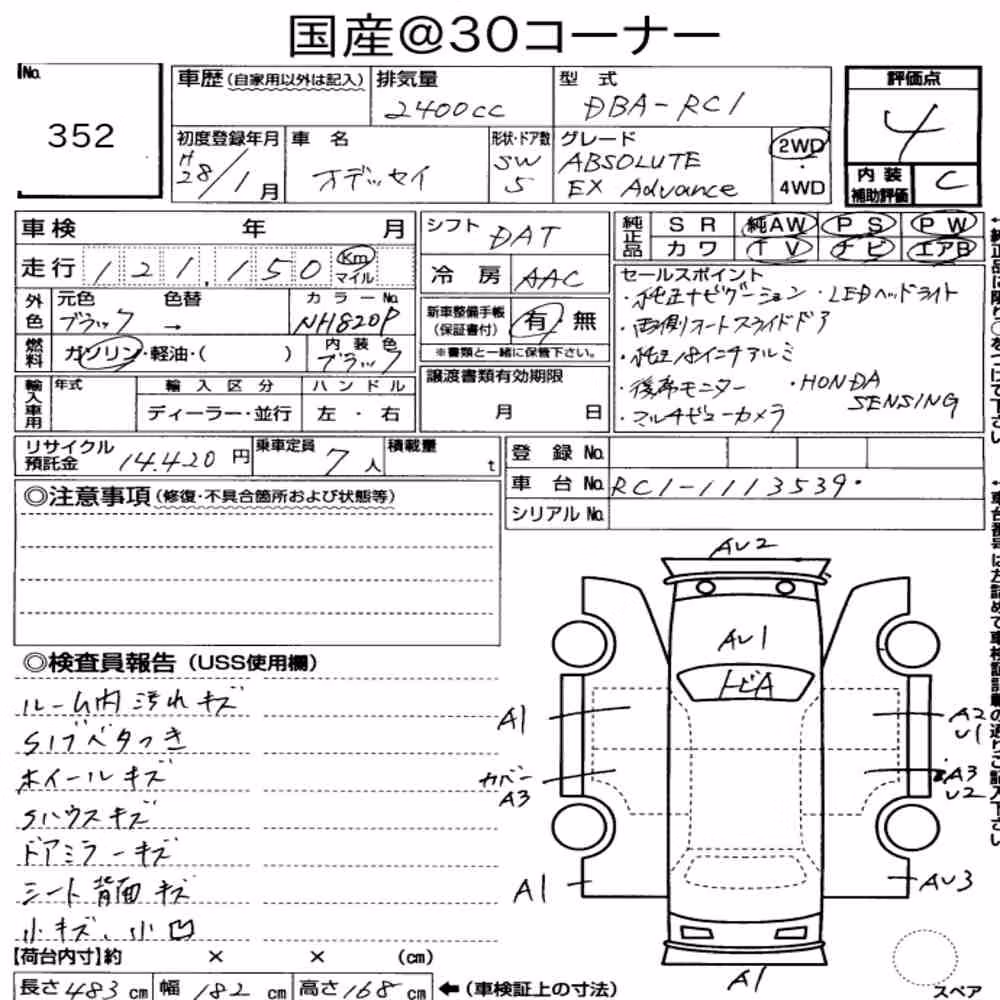 国産@30コーナー
No. 352
車歴(自家用以外は記入) 排気量 2400cc 型式 DBA-RC1
初度登録年月 H28/1月 車名 オデッセイ 形状・ドア数 SW 5 グレード ABSOLUTE EX Advance 2WD・4WD
評価点 4
内装補助評価 C
車検 年 月
走行 121,150 Km マイル
シフト DAT
冷房 AAC
純正品 SR 純AW PS PW
カワ TV ナビ エアB
外色 元色 ブラック 色替 → カラーNo. NH820P
燃料 ガソリン・軽油・( ) 内装色 ブラック
新車整備手帳(保証書付) 有 無
※書類と一緒に保管下さい。
輸入車用 年式 輸入区分 ディーラー・並行 ハンドル 左・右
譲渡書類有効期限 月 日
セールスポイント
・純正ナビゲーション ・LEDヘッドライト
・両側オートスライドドア
・純正18インチアルミ
・後席モニター ・HONDA SENSING
・マルチビューカメラ
リサイクル預託金 14.420円 乗車定員 7人 積載量 t
登録No.
車台No. RC1-1113539・
シリアルNo.
◎注意事項(修復・不具合箇所および状態等)
◎検査員報告(USS使用欄)
ルーム内汚れキズ
S1ブベタつき
ホイールキズ
Sハウスキズ
ドアミラーキズ
シート背面キズ
小キズ、小凹
AU2
AU1
トビA
A1
A2
U1
カバー
A3
A3
U2
A1
AU3
A1
スペア
【荷台内寸】約 × × (cm)
長さ483cm 幅182cm 高さ168cm ←(車検証上の寸法)